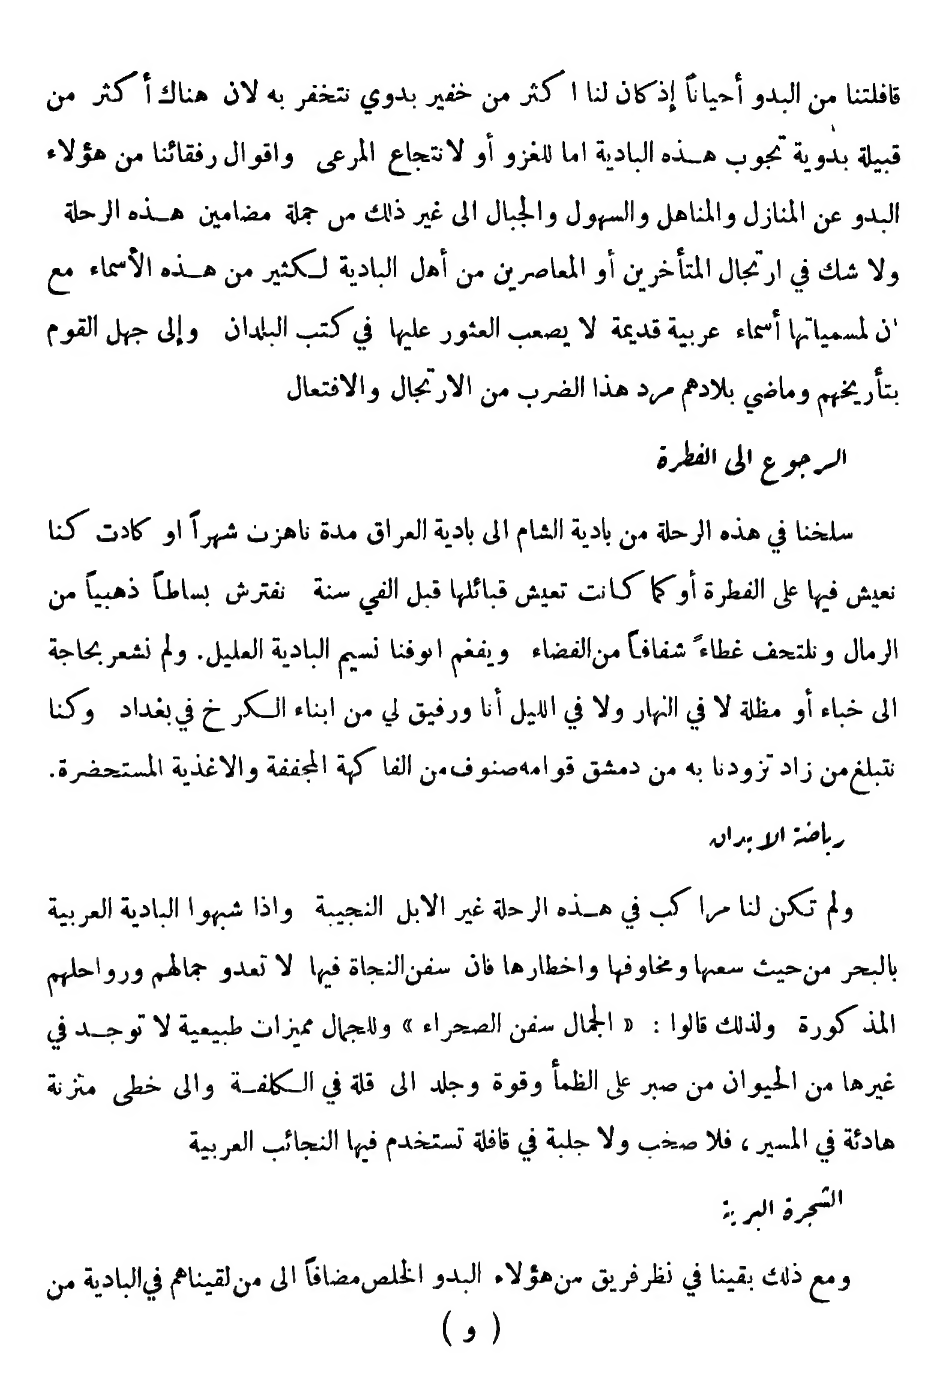 قافلتنا من البدو أحياناً إذ كان لنا اكثر من خفير بدوي نتخفر به لان هناك أكثر من
قبيلة بدوية تجوب هـذه البادية اما للغزو أو لانتجاع المرعى واقوال رفقائنا من هؤلاء
البدو عن المنازل والمناهل والسهول والجبال الى غير ذلك من جملة مضامين هـذه الرحلة
ولا شك في ارتجال المتأخرين أو المعاصرين من أهل البادية لـكثير من هـذه الأسماء مع
ن لمسمياتها أسماء عربية قديمة لا يصعب العثور عليها في كتب البلدان وإلى جهل القوم
بتأريخهم وماضي بلادهم مرد هذا الضرب من الارتجال والافتعال
الرجوع الى الفطرة
سلخنا في هذه الرحلة من بادية الشام الى بادية العراق مدة ناهزت شهراً او كادت كنا
نعيش فيها على الفطرة أو كما كـانت تعيش قبائلها قبل الفي سنة نفترش بساطاً ذهبياً من
الرمال ونلتحف غطاءً شفافاً من الفضاء ويفغم انوفنا نسيم البادية العليل. ولم نشعر بحاجة
الى خباء أو مظلة لا في النهار ولا في الليل أنا ورفيق لي من ابناء الـكرخ في بغداد وكنا
نتبلغ من زاد تزودنا به من دمشق قوامه صنوف من الفاكهة المجففة والاغذية المستحضرة.
رياضة الابدان
ولم تكن لنا مراكب في هـذه الرحلة غير الابل النجيبة واذا شبهوا البادية العربية
بالبحر من حيث سعتها ومخاوفها واخطارها فان سفن النجاة فيها لا تعدو جمالهم ورواحلهم
المذكورة ولذلك قالوا : « الجمال سفن الصحراء » وللجمال مميزات طبيعية لا توجـد في
غيرها من الحيوان من صبر على الظمأ وقوة وجلد الى قلة في الـكلفـة والى خطى متزنة
هادئة في المسير ، فلا صخب ولا جلبة في قافلة تستخدم فيها النجائب العربية
الشجرة البرية
ومع ذلك بقينا في نظر فريق من هؤلاء البدو الخلص مضافاً الى من لقيناهم في البادية من
( و )